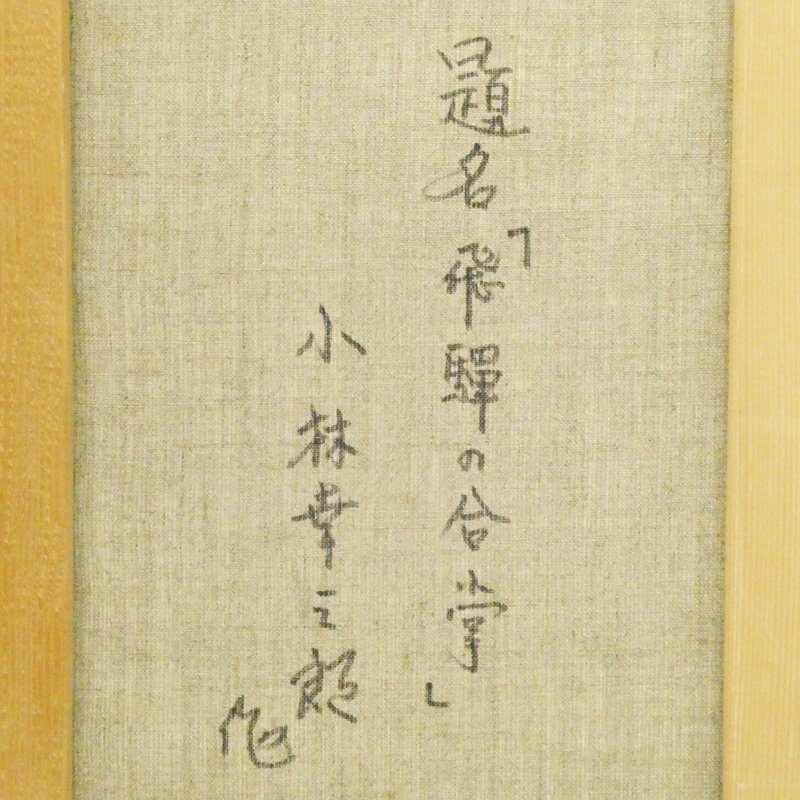 題名「飛驒の合掌」
小林幸三郎
作